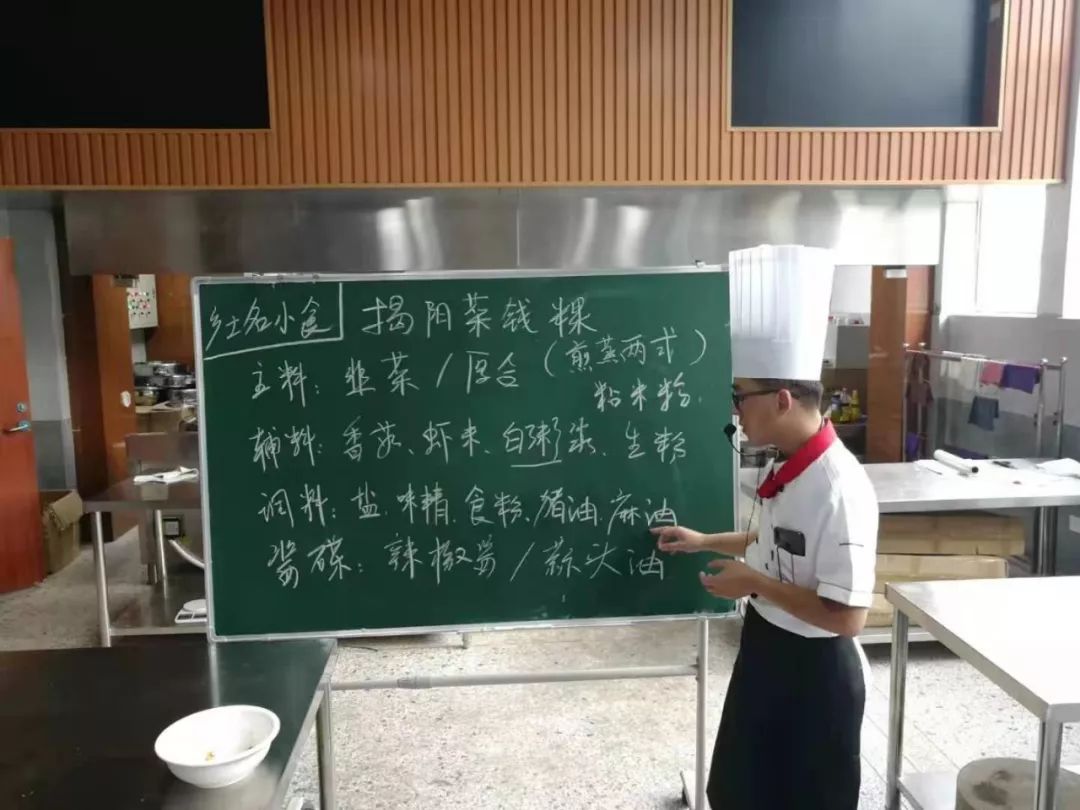 乡土名小食
揭阳菜钱粿
(煎蒸两式)
主料：韭菜/厚合
粘米粉.
辅料：香菇、虾米、白粥浆、生粉
调料：盐.味精.食粉.猪油.麻油
酱碟：辣椒酱/蒜头油